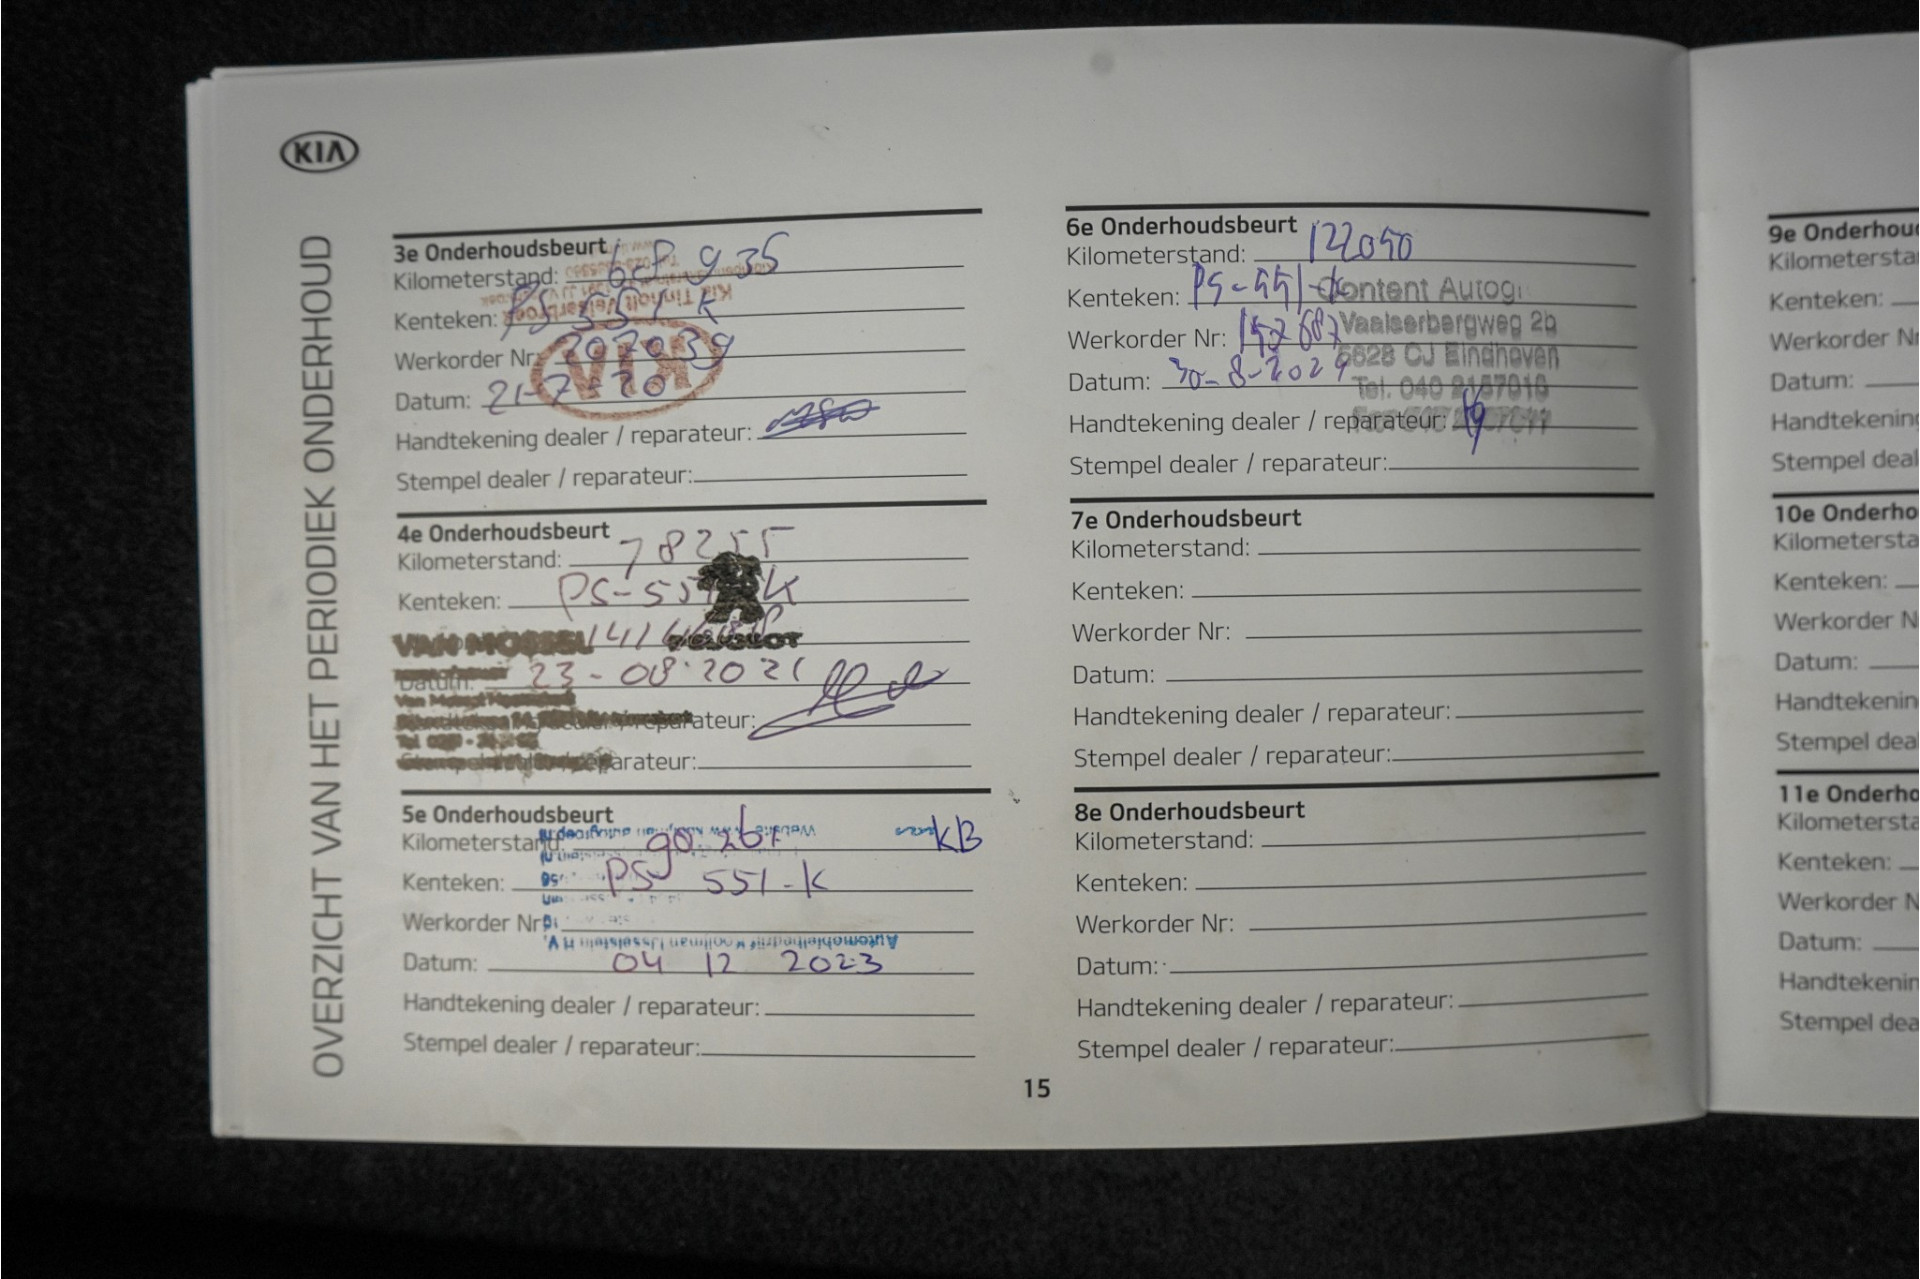 KIA
OVERZICHT VAN HET PERIODIEK ONDERHOUD
3e Onderhoudsbeurt
Kilometerstand:
Kenteken: PS 551 K
Werkorder Nr: 207039
KIA
Datum: 21-7-20
Handtekening dealer / reparateur:
Stempel dealer / reparateur:
4e Onderhoudsbeurt
Kilometerstand: 78255
Kenteken: PS-551 K
VAN MOSSEL PEUGEOT
Datum: 23-08-2021
reparateur:
reparateur:
5e Onderhoudsbeurt
Kilometerstand: KB
Kenteken: PS 551-K
Werkorder Nr:
Automobielbedrijf Kooijman IJsselstein B.V.
Datum: 04 12 2023
Handtekening dealer / reparateur:
Stempel dealer / reparateur:
6e Onderhoudsbeurt
Kilometerstand: 122050
Kenteken: PS-551-K
Content Autogr
Werkorder Nr: 152687
Vaalserbergweg 2b
5628 CJ Eindhoven
Datum: 30-8-2024
Tel. 040
Handtekening dealer / reparateur:
Stempel dealer / reparateur:
7e Onderhoudsbeurt
Kilometerstand:
Kenteken:
Werkorder Nr:
Datum:
Handtekening dealer / reparateur:
Stempel dealer / reparateur:
8e Onderhoudsbeurt
Kilometerstand:
Kenteken:
Werkorder Nr:
Datum:
Handtekening dealer / reparateur:
Stempel dealer / reparateur:
15
9e Onderhou
Kilometersta
Kenteken:
Werkorder Nr
Datum:
Handtekening
Stempel deal
10e Onderho
Kilometersta
Kenteken:
Werkorder N
Datum:
Handtekenin
Stempel deal
11e Onderho
Kilometersta
Kenteken:
Werkorder N
Datum:
Handtekenin
Stempel dea